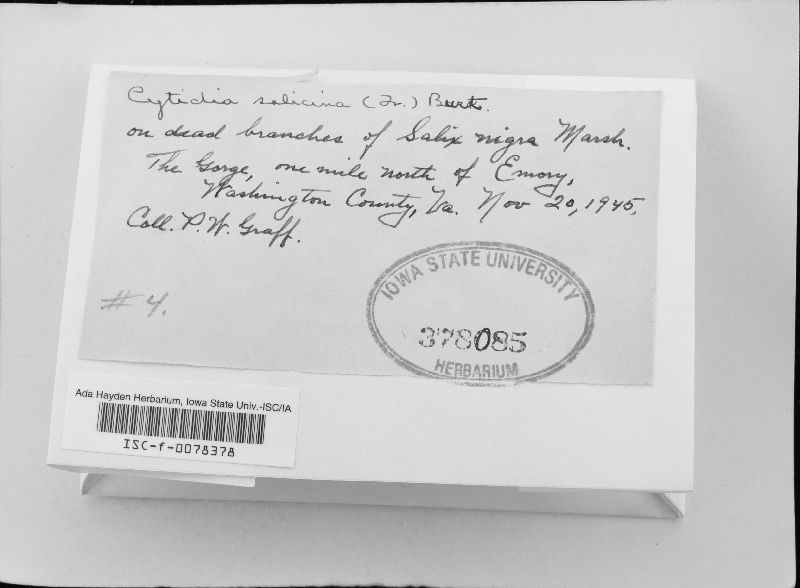 Cytidia salicina (Fr.) Burt.
on dead branches of Salix nigra Marsh.
The Gorge, one mile north of Emory,
Washington County, Va. Nov 20, 1945.
Coll. P. W. Graff.
# 4.
IOWA STATE UNIVERSITY
378085
HERBARIUM
Ada Hayden Herbarium, Iowa State Univ.-ISC/IA
ISC-f-0078378